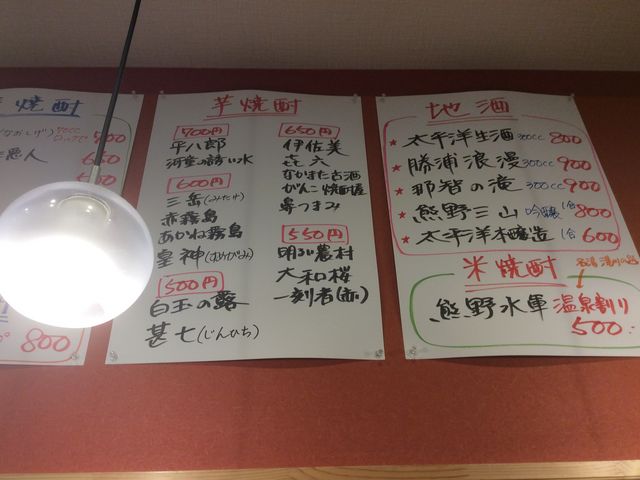 焼酎
(なかしげ) 700
悪人 650
500
800
芋焼酎
700円
平八郎
河童の誘い水
600円
三岳(みたけ)
赤霧島
あかね霧島
皇神(すめらみ)
500円
白玉の露
甚七(じんひち)
650円
伊佐美
㐂六
なかまた古酒
がんこ焼酎屋
鼻つまみ
550円
明るい農村
大和桜
一刻者(赤)
地酒
★太平洋生酒300cc 800
★勝浦浪漫300cc 900
★那智の滝300cc 900
★熊野三山吟醸1合800
★太平洋本醸造1合600
米焼酎
熊野水軍 温泉割り
500